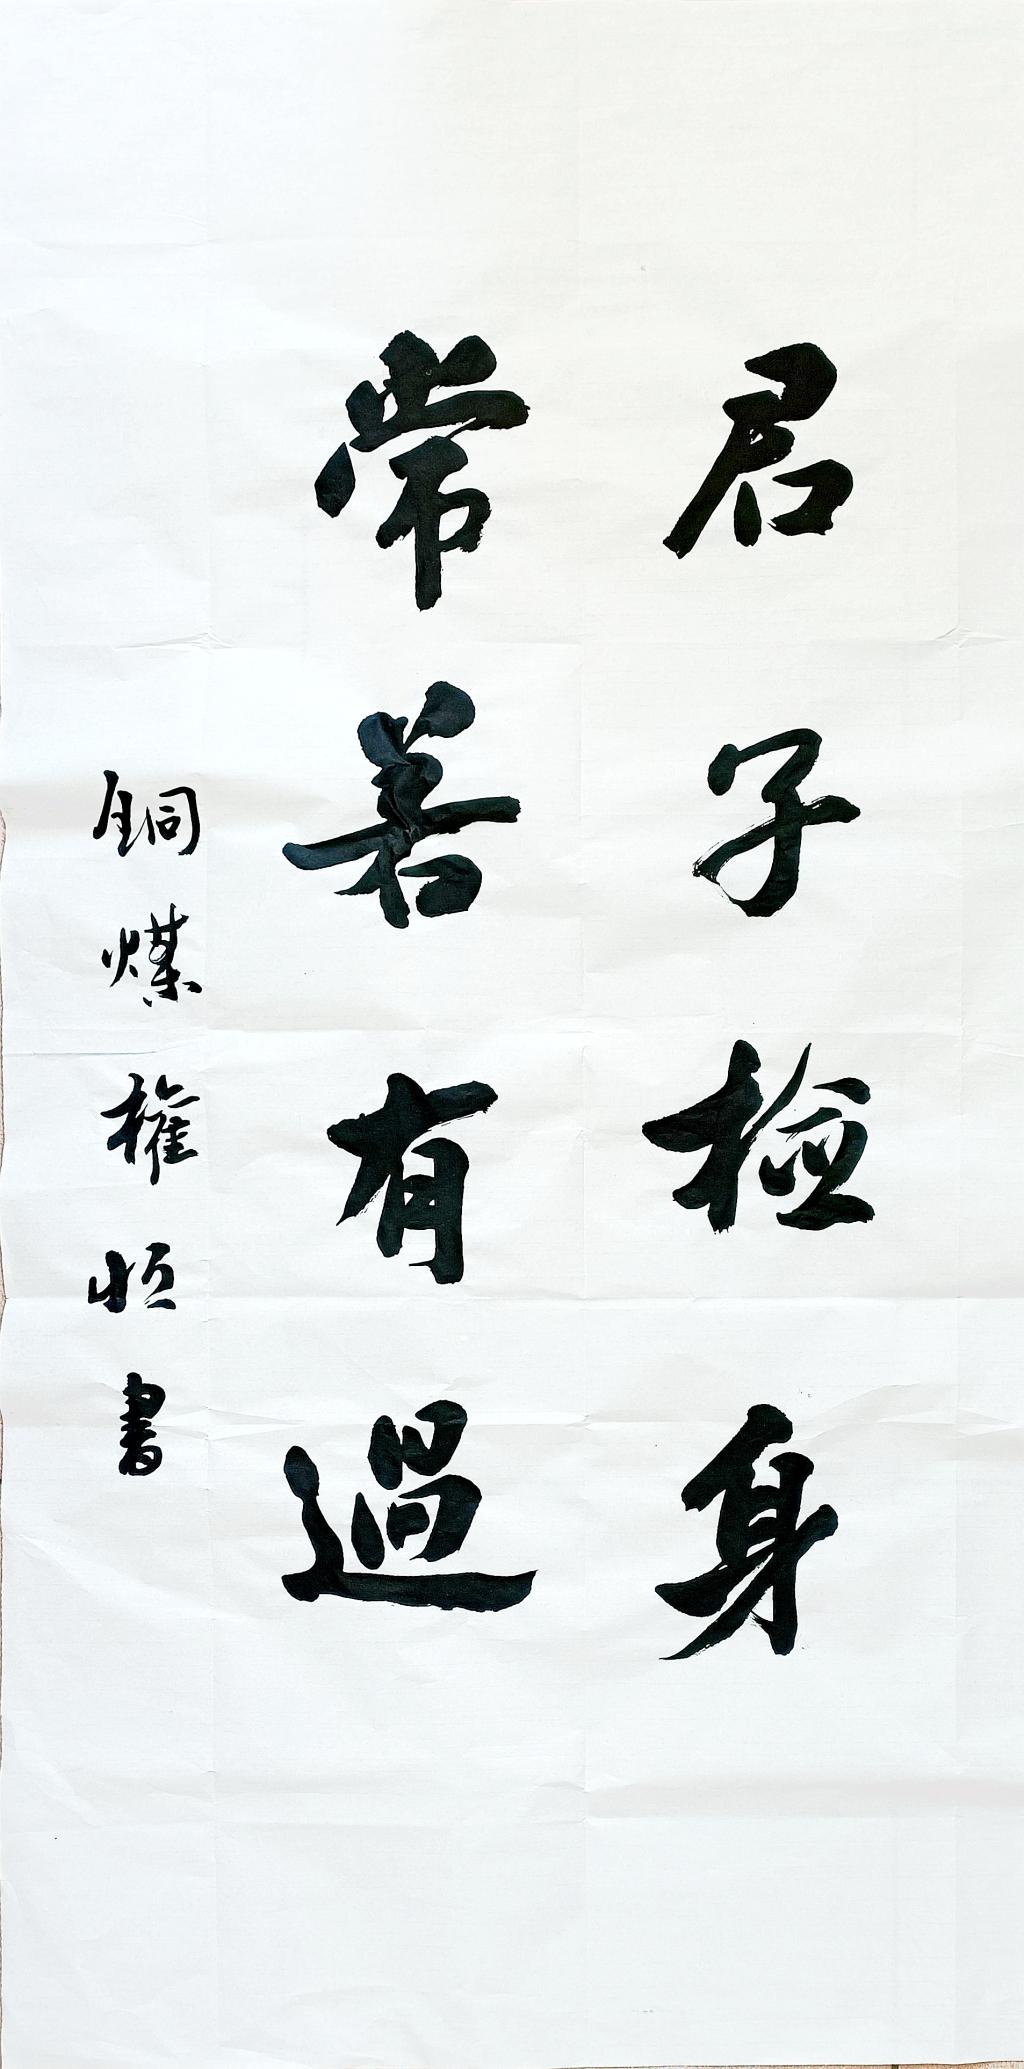 君子檢身
常若有過
銅煤權恒書